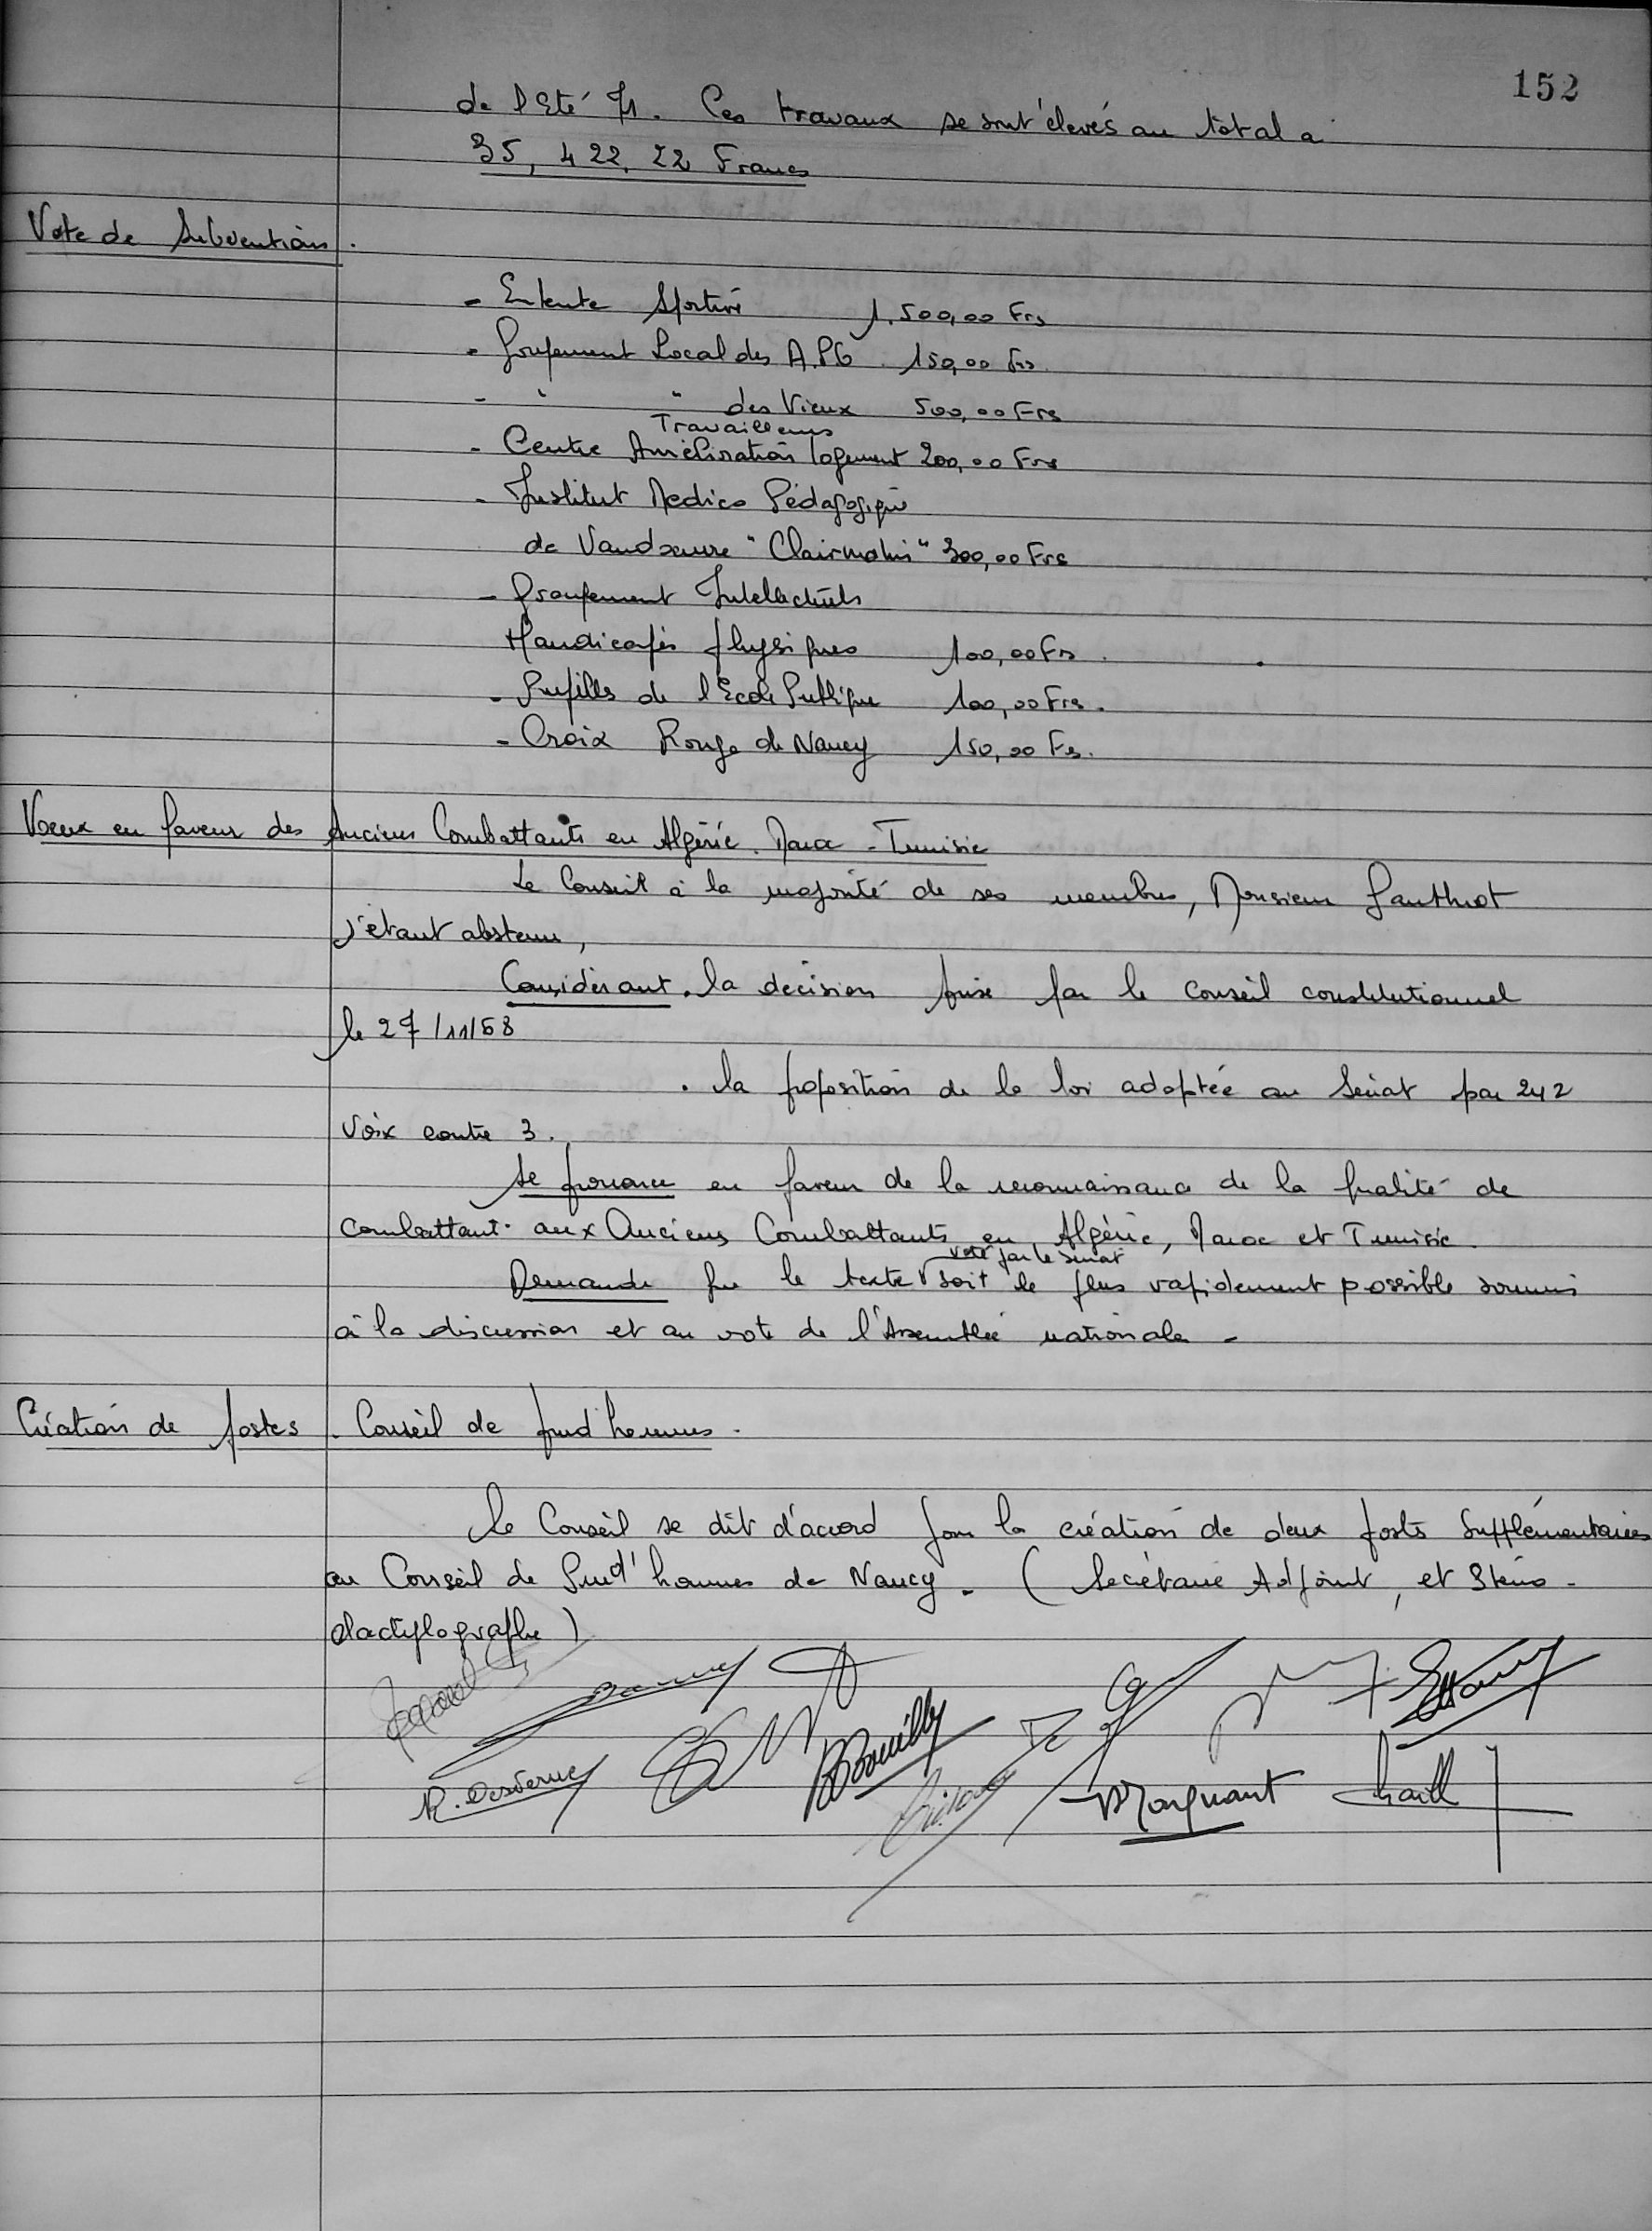 152
de l'Eté 71. Ces travaux se sont élevés au total a
35,422,22 Francs
Vote de Subventions.
- Entente Sportive 1.500,00 Frs
- Goupement Local des A.P.G. 150,00 Frs.
- " " des Vieux 500,00 Frs
Travailleurs
- Centre Amélioration logement 200,00 Frs
- Institut Medico Pédagogique
de Vandoeuvre "Clairmatin" 300,00 Frs
- Groupement Intellectuels
Handicapés physiques 100,00 Frs.
- Pupilles de l'Ecole Publique 100,00 Frs.
- Croix Rouge de Nancy 150,00 Frs.
Voeux en faveur des Anciens Combattants en Algérie. Maroc - Tunisie
Le Conseil à la majorité de ses membres, Monsieur Gauthrot
s'étant abstenu,
Considérant. la décision prise par le Conseil constitutionnel
le 27/11/68
. la proposition de la loi adoptée au Sénat par 242
voix contre 3.
se prononce en faveur de la reconnaissance de la qualité de
combattant aux Anciens Combattants en Algérie, Maroc et Tunisie.
voté par le Sénat
Demande que le texte soit le plus rapidement possible soumis
à la discussion et au vote de l'Assemblée nationale -
Création de postes. Conseil de prud'hommes.
Le Conseil se dit d'accord pour la création de deux postes supplémentaires
au Conseil de Prud'hommes de Nancy - (Secrétaire Adjoint, et Sténo-
dactylographe)